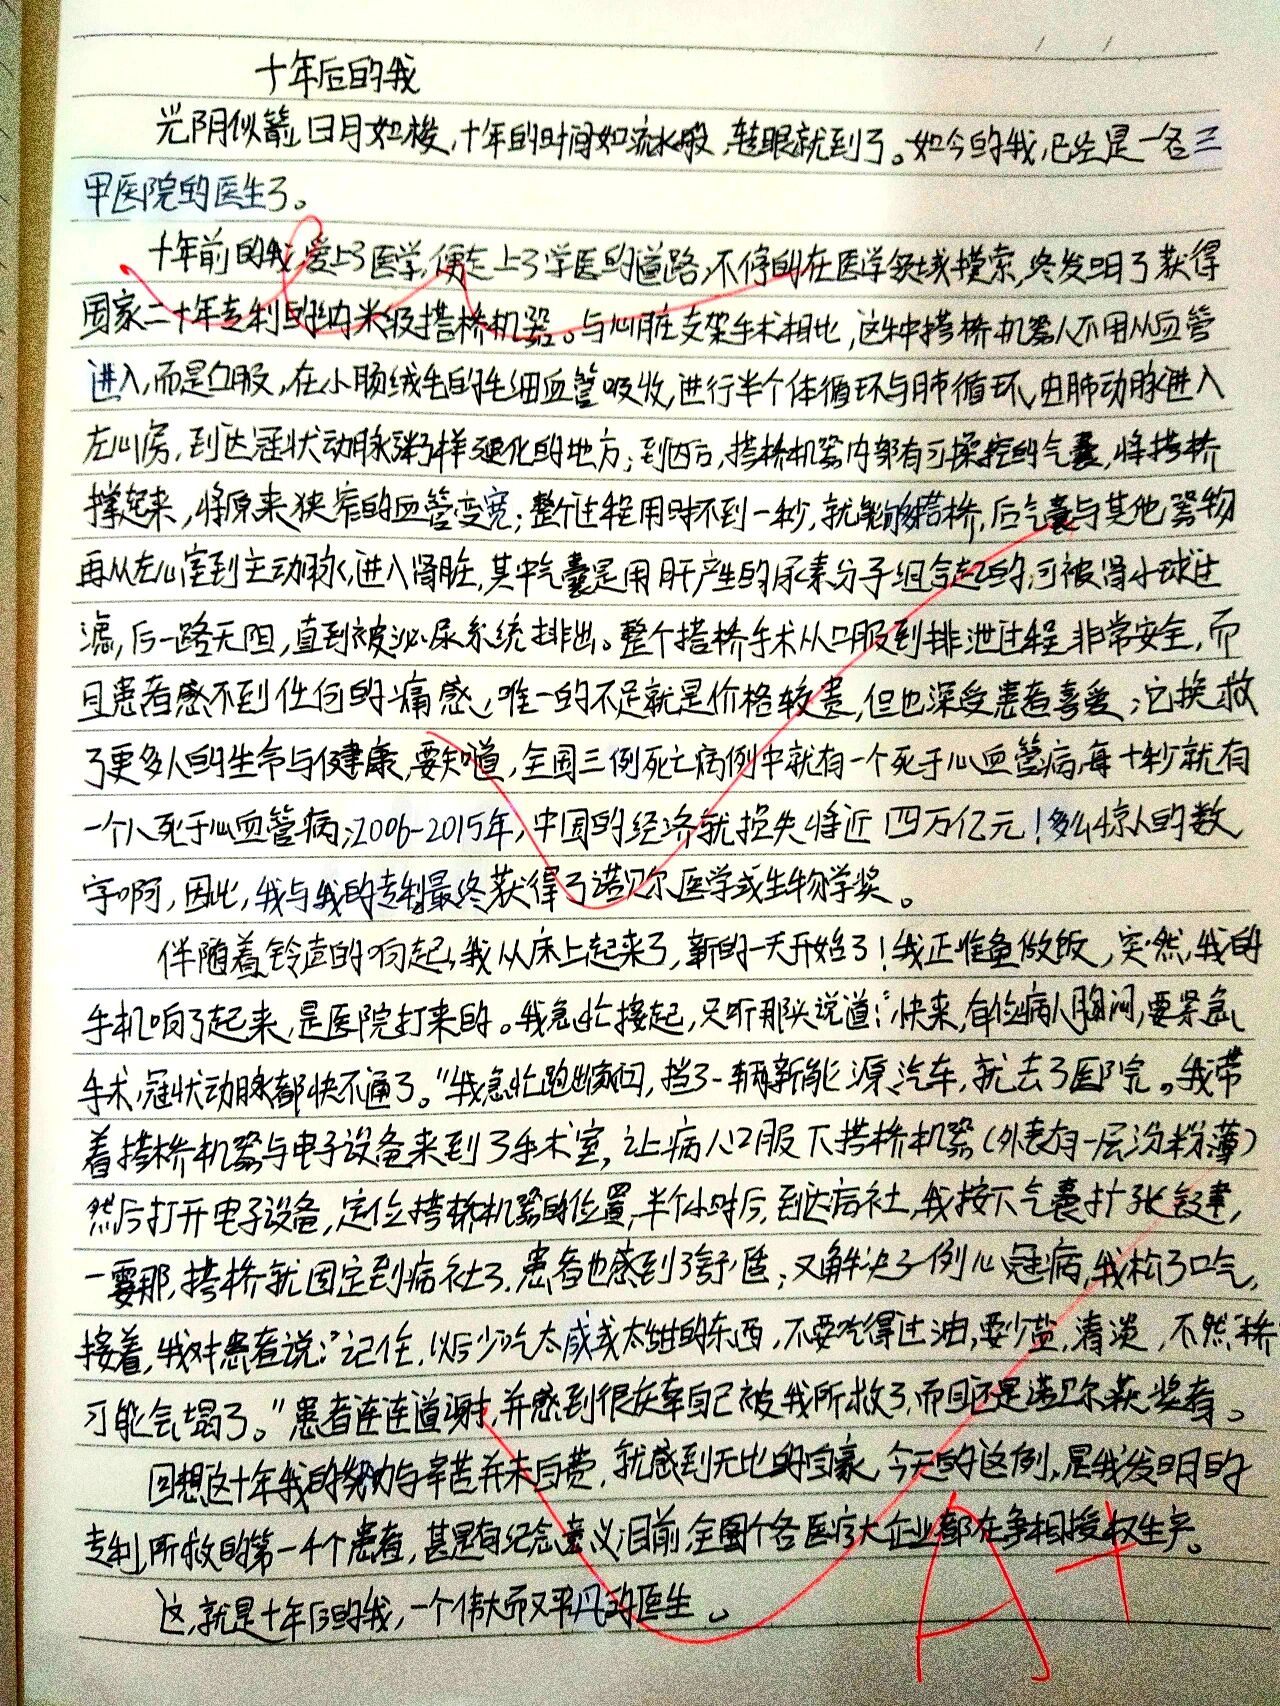 十年后的我
光阴似箭,日月如梭,十年的时间如流水般,转眼就到了。如今的我,已经是一名三
甲医院的医生了。
十年前的我,爱上了医学,便走上了学医的道路,不停的在医学领域摸索,终发明了获得
国家二十年专利的纳米级搭桥机器。与心脏支架手术相比,这种搭桥机器人不用从血管
进入,而是口服,在小肠绒毛的毛细血管吸收,进行半个体循环与肺循环,由肺动脉进入
左心房,到达冠状动脉粥样硬化的地方;到达后,搭桥机器内部有可操控的气囊,将搭桥
撑起来,将原来狭窄的血管变宽;整个过程用时不到一秒,就能够搭桥,后气囊与其他器物
再从左心室到主动脉,进入肾脏,其中气囊是用肝产生的尿素分子组合起的,可被肾小球过
滤,后一路无阻,直到被泌尿系统排出。整个搭桥手术从口服到排泄过程非常安全,而
且患者感不到任何的痛感,唯一的不足就是价格较贵,但也深受患者喜爱;它挽救
了更多人的生命与健康,要知道,全国三例死亡病例中就有一个死于心血管病,每十秒就有
一个人死于心血管病;2006-2015年,中国的经济就损失将近四万亿元!多么惊人的数
字啊,因此,我与我的专利最终获得了诺贝尔医学或生物学奖。
伴随着铃声的响起,我从床上起来了,新的一天开始了!我正准备做饭,突然,我的
手机响了起来,是医院打来的。我急忙接起,只听那头说道:“快来,有位病人胸闷,要紧急
手术,冠状动脉都快不通了。”我急忙跑出家门,挡了一辆新能源汽车,就去了医院。我带
着搭桥机器与电子设备来到了手术室,让病人口服下搭桥机器(外表有一层淀粉薄)
然后打开电子设备,定位搭桥机器的位置,半个小时后,到达病灶,我按下气囊扩张键,
一霎那,搭桥就固定到病灶了,患者也感到了舒适;又解决了一例心冠病,我松了口气,
接着,我对患者说:“记住,以后少吃太咸或太甜的东西,不要吃得过油,要少盐,清淡,不然,桥
可能会塌了。”患者连连道谢,并感到很庆幸自己被我所救了,而且还是诺贝尔获奖者。
回想这十年我的努力与辛苦并未白费,就感到无比的自豪,今天的这例,是我发明的
专利所救的第一千个患者,甚是有纪念意义;目前,全国个各医疗大企业都在争相授权生产。
这,就是十年后的我,一个伟大而又平凡的医生。
A+